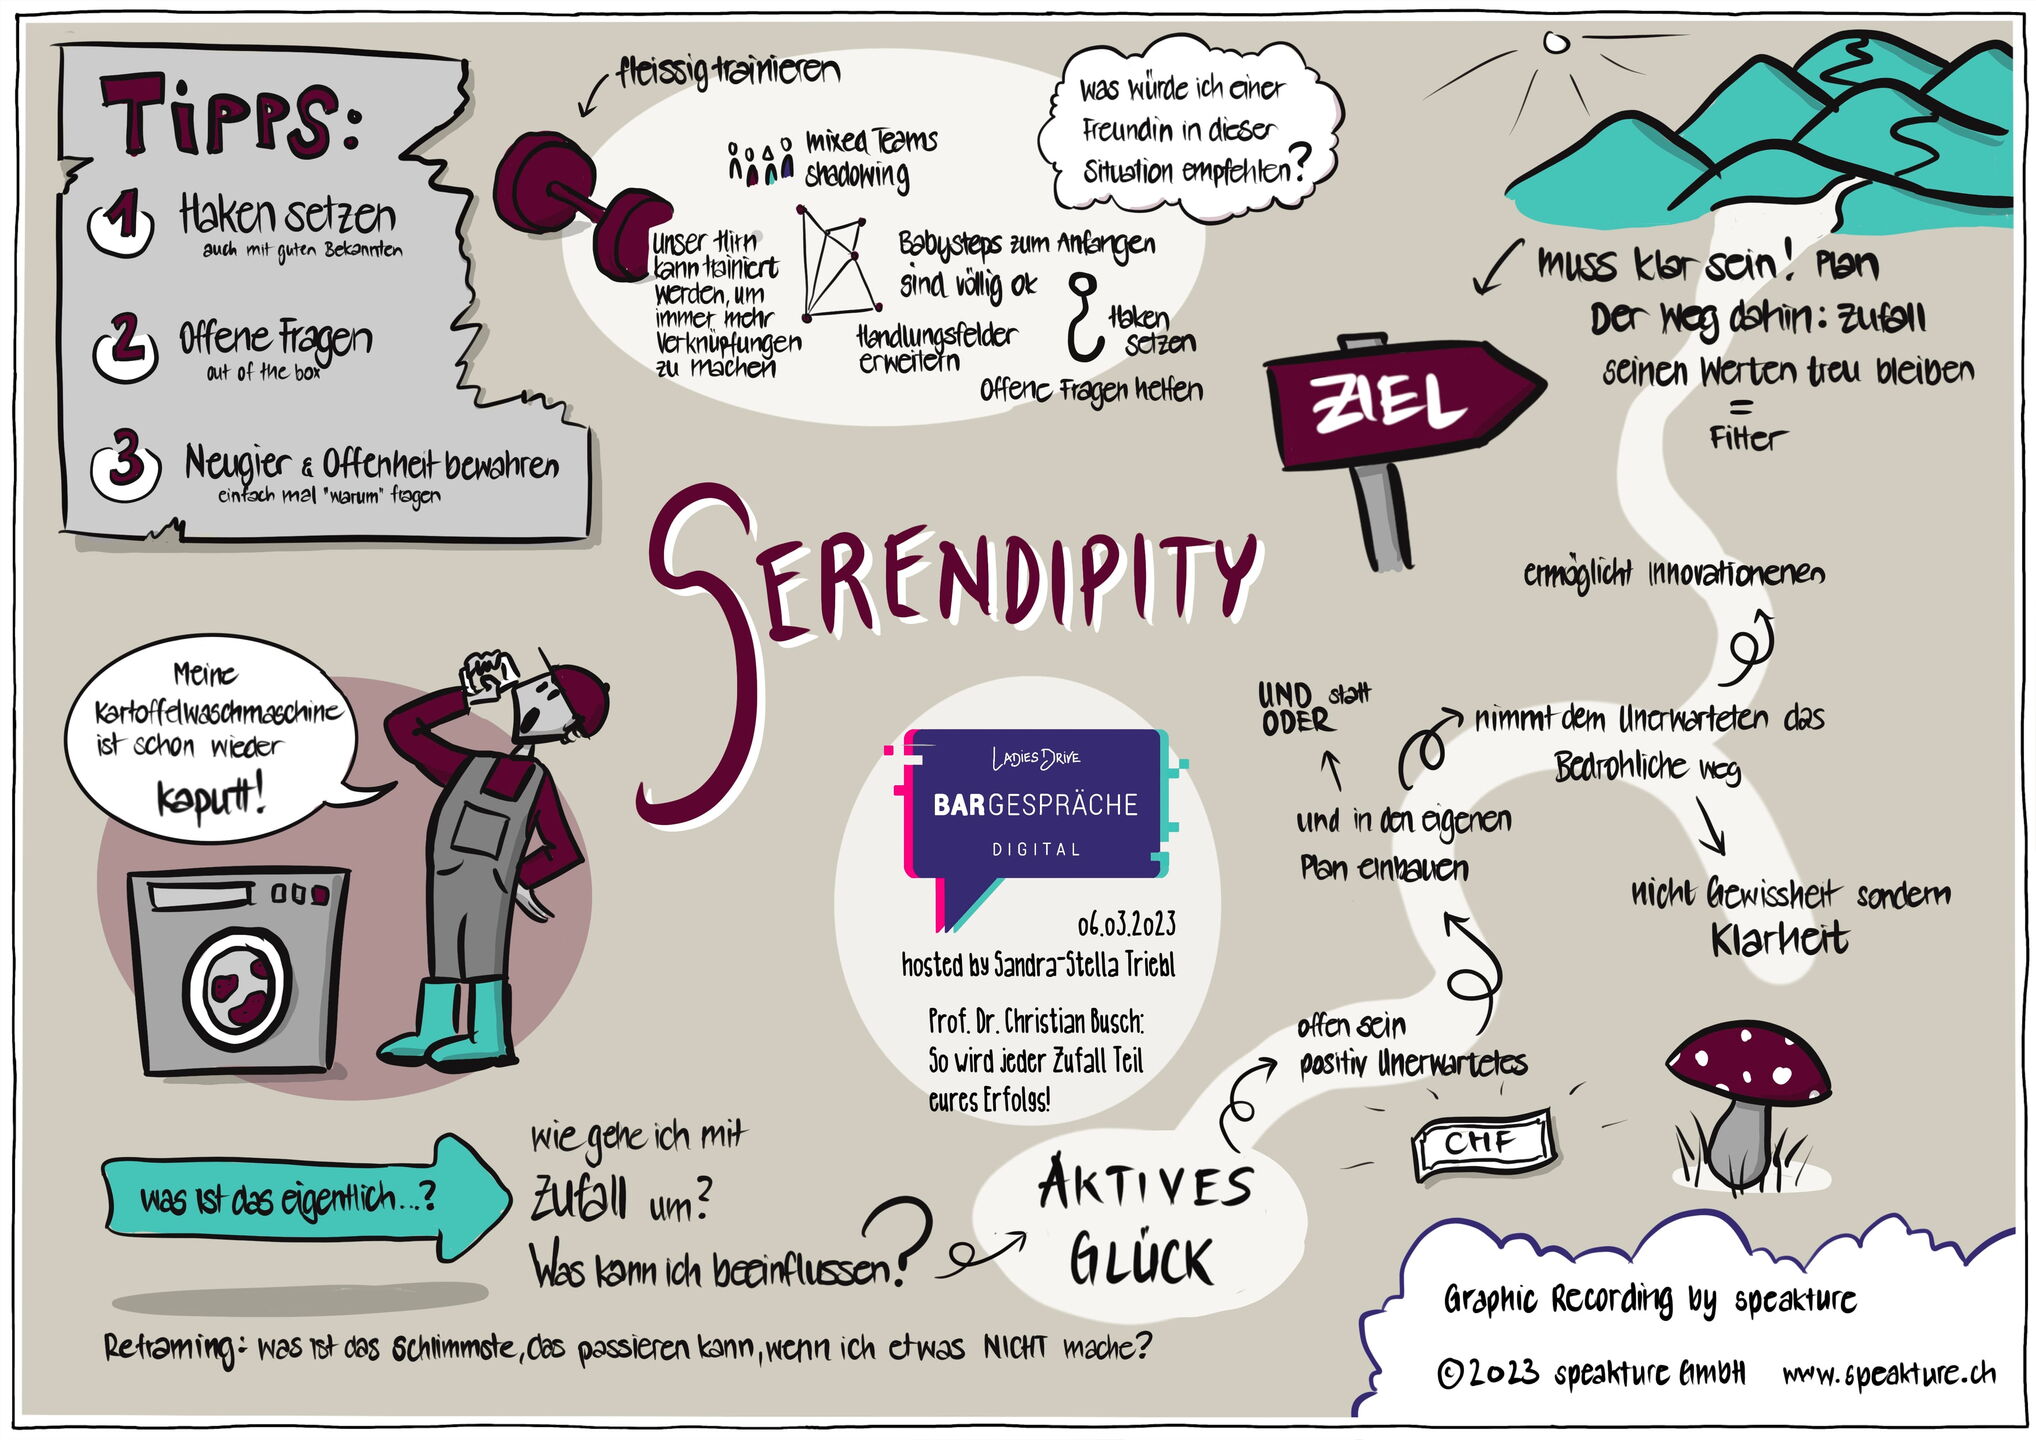 Tipps:
1 Haken setzen
auch mit guten Bekannten
2 Offene Fragen
out of the box
3 Neugier & Offenheit bewahren
einfach mal "warum" fragen
fleissig trainieren
mixed Teams
shadowing
unser Hirn
kann trainiert
werden, um
immer mehr
Verknüpfungen
zu machen
Babysteps zum Anfangen
sind völlig ok
Handlungsfelder
erweitern
Haken
setzen
Offene Fragen helfen
was würde ich einer
Freundin in dieser
Situation empfehlen?
muss klar sein! Plan
Der Weg dahin: Zufall
seinen Werten treu bleiben
=
Filter
ZIEL
SERENDIPITY
ermöglicht Innovationenen
Meine
Kartoffelwaschmaschine
ist schon wieder
kaputt!
LADIES DRIVE
BARGESPRÄCHE
DIGITAL
06.03.2023
hosted by Sandra-Stella Triebl
Prof. Dr. Christian Busch:
So wird jeder Zufall Teil
eures Erfolgs!
UND statt
ODER
nimmt dem Unerwarteten das
Bedrohliche weg
und in den eigenen
Plan einbauen
nicht Gewissheit sondern
Klarheit
offen sein
positiv Unerwartetes
CHF
was ist das eigentlich...?
wie gehe ich mit
Zufall um?
Was kann ich beeinflussen?
AKTIVES
GLÜCK
Reframing: was ist das Schlimmste, das passieren kann, wenn ich etwas NICHT mache?
Graphic Recording by speakture
©2023 speakture GmbH www.speakture.ch